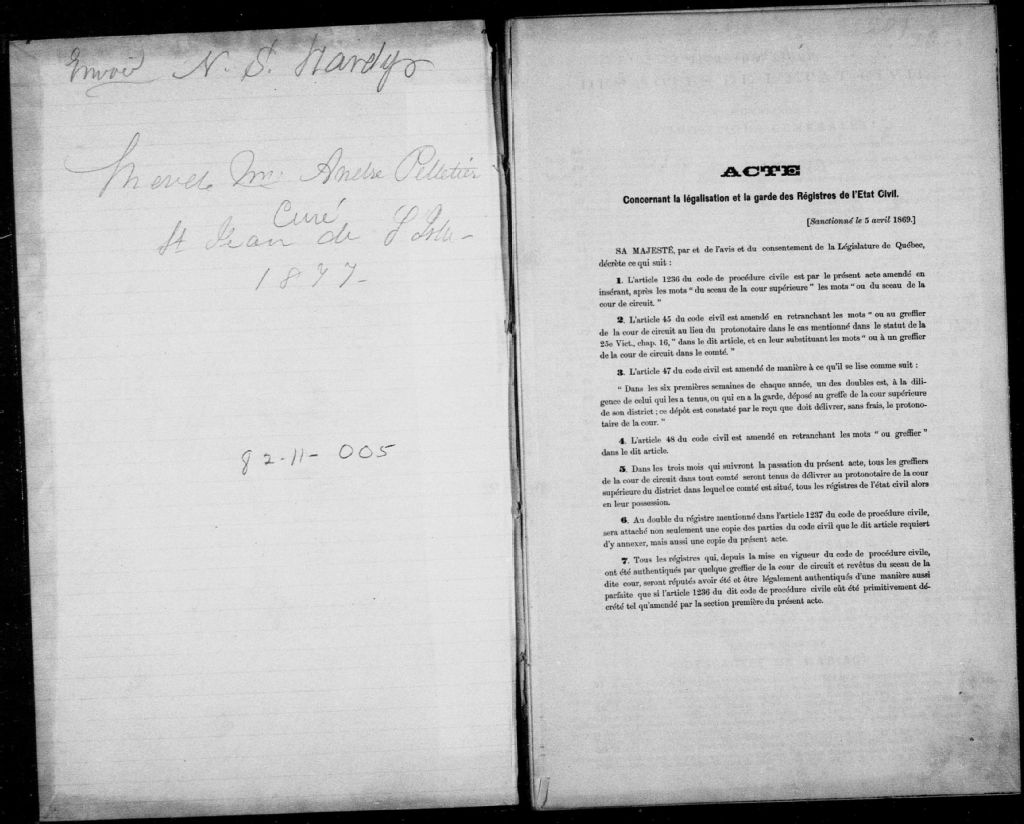 Envoi N. S. Hardy
Mr. André Pelletier
Curé
St Jean de L'Isle
1877
82-11-005
ACTE
Concernant la légalisation et la garde des Régistres de l'Etat Civil.
[Sanctionné le 5 avril 1869.]
SA MAJESTÉ, par et de l'avis et du consentement de la Législature de Québec,
décrète ce qui suit :
1. L'article 1236 du code de procédure civile est par le présent acte amendé en
insérant, après les mots “ du sceau de la cour supérieure ” les mots “ ou du sceau de la
cour de circuit. ”
2. L'article 45 du code civil est amendé en retranchant les mots “ ou au greffier
de la cour de circuit au lieu du protonotaire dans le cas mentionné dans le statut de la
25e Vict., chap. 16, ” dans le dit article, et en leur substituant les mots “ ou à un greffier
de la cour de circuit dans le comté. ”
3. L'article 47 du code civil est amendé de manière à ce qu'il se lise comme suit :
“ Dans les six premières semaines de chaque année, un des doubles est, à la dili-
gence de celui qui les a tenus, ou qui en a la garde, déposé au greffe de la cour supérieure
de son district ; ce dépôt est constaté par le reçu que doit délivrer, sans frais, le protono-
taire de la cour. ”
4. L'article 48 du code civil est amendé en retranchant les mots “ ou greffier ”
dans le dit article.
5. Dans les trois mois qui suivront la passation du présent acte, tous les greffiers
de la cour de circuit dans tout comté seront tenus de délivrer au protonotaire de la cour
supérieure du district dans lequel ce comté est situé, tous les régistres de l'état civil alors
en leur possession.
6. Au double du régistre mentionné dans l'article 1237 du code de procédure civile,
sera attaché non seulement une copie des parties du code civil que le dit article requiert
d'y annexer, mais aussi une copie du présent acte.
7. Tous les régistres qui, depuis la mise en vigueur du code de procédure civile,
ont été authentiqués par quelque greffier de la cour de circuit et revêtus du sceau de la
dite cour, seront réputés avoir été et être légalement authentiqués d'une manière aussi
parfaite que si l'article 1236 du dit code de procédure civile eût été primitivement dé-
crété tel qu'amendé par la section première du présent acte.